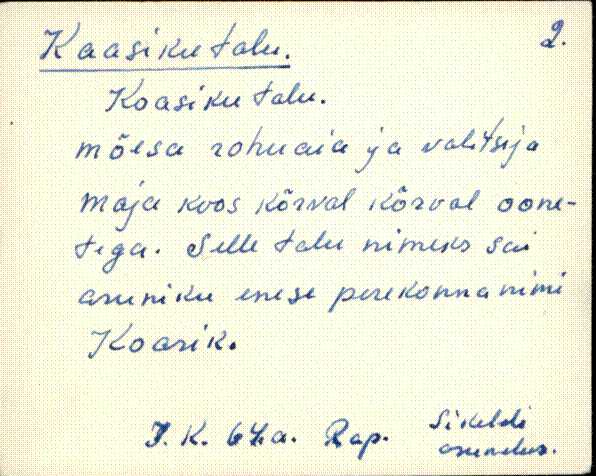 Kaasiku talu. 2.
Koasiku talu.
mõesa rohuaia ja valitsija
maja koos kõrval kõrval oone-
tega. Selle talu nimeks sai
asuniku enese perekonna nimi
Koasik.
J. K. 64a. Rap. Sikeldi
asundus.